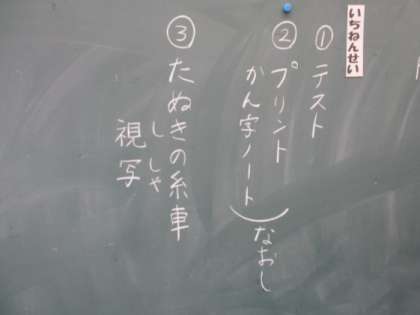 いちねんせい
①テスト
②プリント
かん字ノート
なおし
③たぬきの糸車
視写
ししゃ